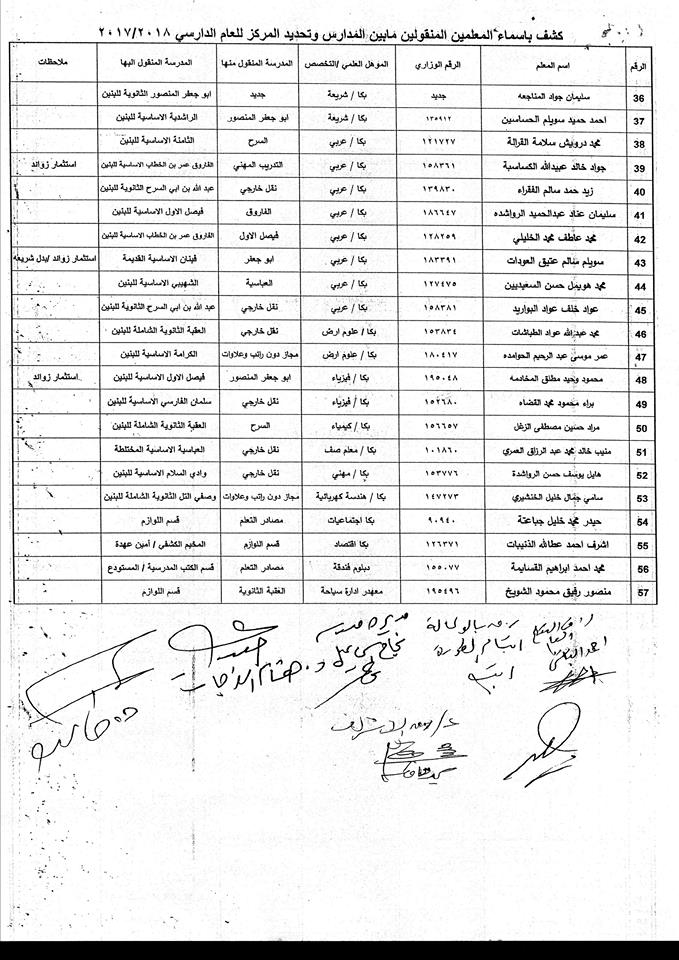 كشف باسماء المعلمين المنقولين مابين المدارس وتحديد المركز للعام الدارسي ٢٠١٧/٢٠١٨
الرقم اسم المعلم الرقم الوزاري الموهل العلمي /التخصص المدرسة المنقول منها المدرسة المنقول اليها ملاحظات
36 سليمان جواد المناجعه جديد بكا / شريعة جديد ابو جعفر المنصور الثانوية للبنين
37 احمد حميد سويلم الحساسين ١٣٥٩١٢ بكا / شريعة ابو جعفر المنصور الراشدية الاساسية للبنين
38 محمد درويش سلامة القرالة ١٢١٧٢٧ بكا / عربي السرح الثامنة الاساسية للبنين
39 جواد خالد عبيدالله الكساسبة ١٥٨٣٦١ بكا / عربي التدريب المهني الفاروق عمر بن الخطاب الاساسية للبنين استثمار زوائد
40 زيد حمد سالم الفقراء ١٣٩٨٣٠ بكا / عربي نقل خارجي عبد الله بن ابي السرح الثانوية للبنين
41 سليمان عناد عبدالحميد الرواشده ١٨٦٦٤٧ بكا / عربي الفاروق فيصل الاول الاساسية للبنين
42 محمد عاطف محمد الخليلي ١٢٨٢٥٩ بكا / عربي فيصل الاول الفاروق عمر بن الخطاب الاساسية للبنين
43 سويلم سالم عتيق العودات ١٨٣٣٩١ بكا / عربي ابو جعفر فينان الاساسية القديمة استثمار زوائد /بدل شريعه
44 محمد هويمل حسن السعيديين ١٢٧٤٧٥ بكا / عربي العباسية الشهيبي الاساسية للبنين
45 عواد خلف عواد البواريد ١٥٨٣٨١ بكا / عربي نقل خارجي عبد الله بن ابي السرح الثانوية للبنين
46 محمد عبدالله عواد الطباشات ١٥٣٨٣٤ بكا / علوم ارض نقل خارجي العقبة الثانوية الشاملة للبنين
47 عمر موسى عبد الرحيم الحوامده ١٨٠٤١٧ بكا / علوم ارض مجاز دون راتب وعلاوات الكرامة الاساسية للبنين
48 محمود وحيد مطلق المخادمه ١٩٥٠٤٨ بكا / فيزياء ابو جعفر المنصور فيصل الاول الاساسية للبنين استثمار زوائد
49 براء محمود محمد القضاه ١٥٢٦٨٠ بكا / فيزياء نقل خارجي سلمان الفارسي الاساسية للبنين
50 مراد حسين مصطفى الزغل ١٥٦٦٥٧ بكا / كيمياء السرح العقبة الثانوية الشاملة للبنين
51 منيب خالد محمد عبد الرزاق العمري ١٠١٨٦٠ بكا / معلم صف نقل خارجي العباسية الاساسية المختلطة
52 هايل يوسف حسن الرواشدة ١٥٣٧٧٦ بكا / مهني نقل خارجي وادي السلام الاساسية للبنين
53 سامي جمال خليل الخنشيري ١٤٧٢٧٣ بكا / هندسة كهربائية مجاز دون راتب وعلاوات وصفي التل الثانوية الشاملة للبنين
54 حيدر محمد خليل جباعتة ٩٠٩٤٠ بكا اجتماعيات مصادر التعلم قسم اللوازم
55 اشرف احمد عطاالله الذنيبات ١٢٦٣٧١ بكا اقتصاد قسم اللوازم المخيم الكشفي / أمين عهدة
56 محمد احمد ابراهيم القسايمة ١٥٥٠٧٧ دبلوم فندقة مصادر التعلم قسم الكتب المدرسية / المستودع
57 منصور رفيق محمود الشويخ ١٩٥٤٩٦ معهدر ادارة سياحة العقبة الثانوية قسم اللوازم